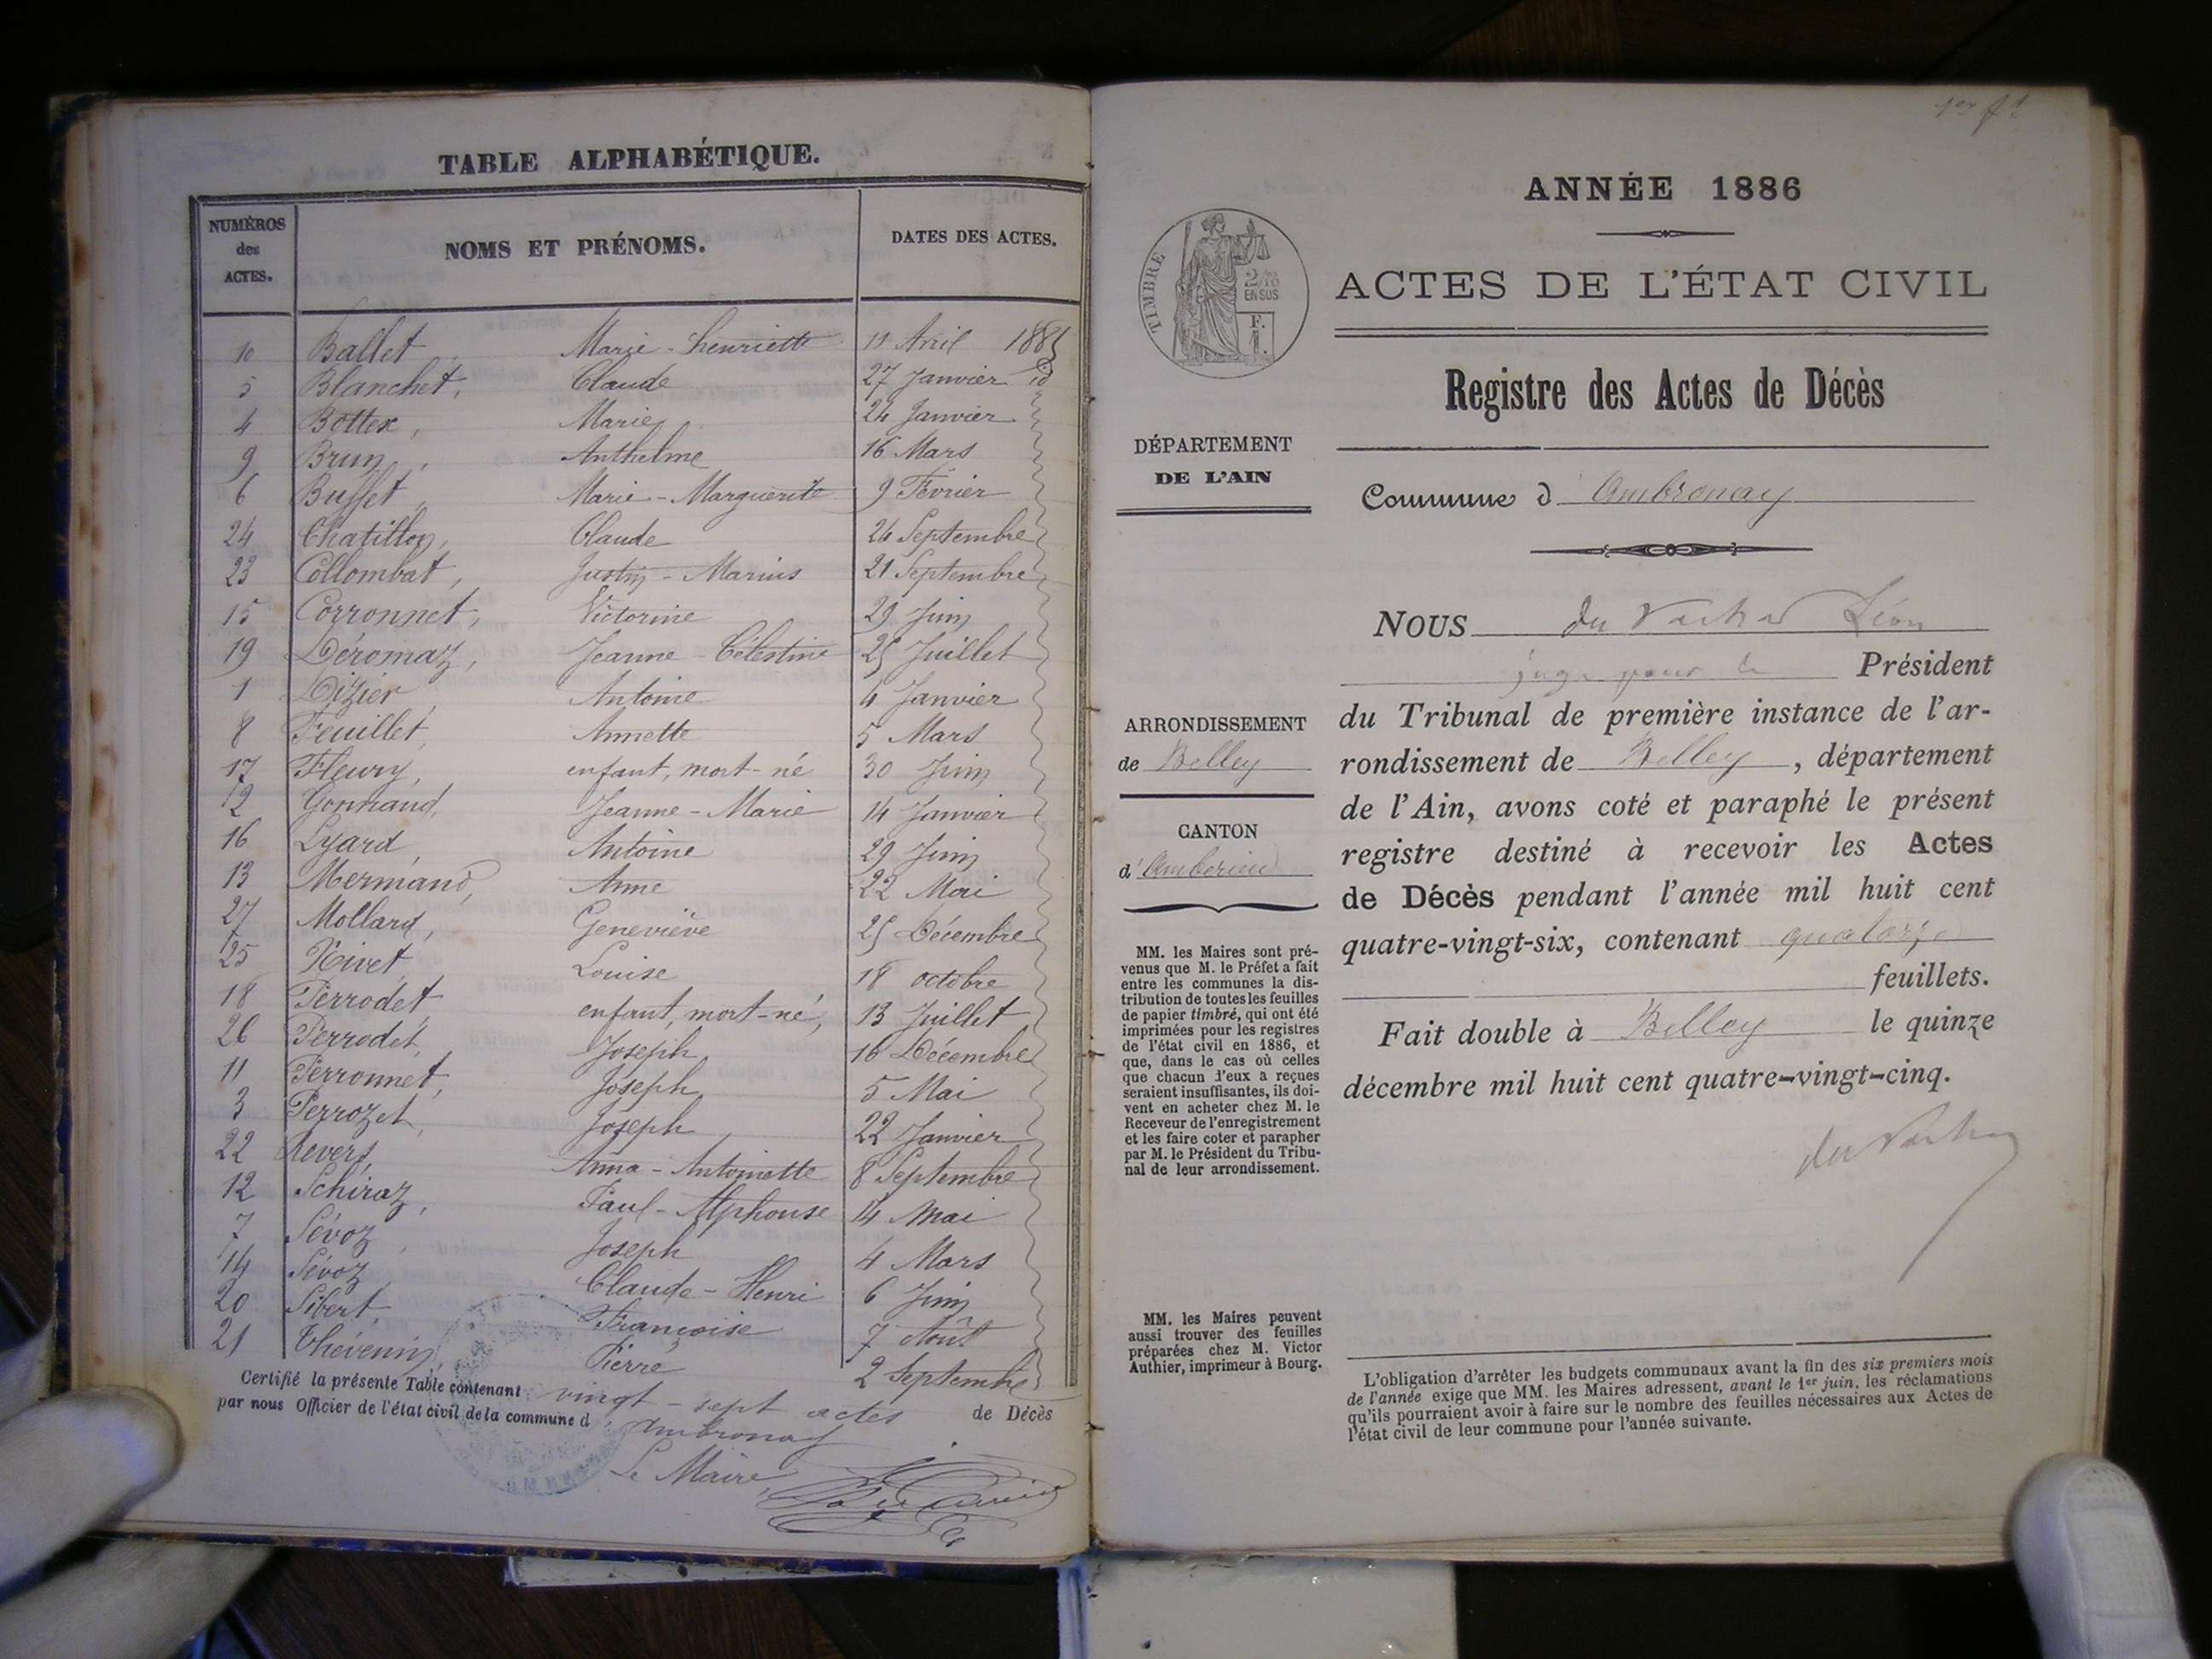 TABLE ALPHABÉTIQUE.
NUMÉROS des ACTES.
NOMS ET PRÉNOMS.
DATES DES ACTES.
10 Ballet, Marie-henriette 10 Avril 1885
5 Blanchet, Claude 27 Janvier id
4 Bottex, Marie 24 Janvier
9 Brun, Anthelme 16 Mars
6 Buffet, Marie-Marguerite 9 Février
24 Chatillon, Claude 24 Septembre
23 Collombat, Justin-Marius 21 Septembre
15 Corronnet, Victorine 29 Juin
19 Déromaz, Jeanne-Célestine 25 Juillet
1 Dizier, Antoine 4 Janvier
8 Feuillet, Annette 5 Mars
17 Fleury, enfant, mort-né 30 Juin
2 Gonnand, Jeanne-Marie 14 Janvier
16 Lyard, Antoine 29 Juin
13 Mermand, Anne 22 Mai
27 Mollard, Geneviève 25 Décembre
25 Nivet, Louise 18 octobre
18 Perrodet, enfant, mort-né, 13 Juillet
26 Perrodet, Joseph 16 Décembre
11 Perronnet, Joseph 5 Mai
3 Perrozet, Joseph 22 Janvier
22 Revers, Anna-Antoinette 8 Septembre
12 Schiraz, Paul-Alphonse 14 Mai
7 Sévoz, Joseph 4 Mars
14 Sévoz, Claude-Henri 6 Juin
20 Sibert, Françoise 7 Août
21 Thévenin, Pierre 2 Septembre
Certifié la présente Table contenant vingt-sept actes de Décès
par nous Officier de l'état civil de la commune d'Ambronay
Le Maire,
1er ft
ANNÉE 1886
TIMBRE
2/10
EN SUS
F.
1.
ACTES DE L'ÉTAT CIVIL
Registre des Actes de Décès
DÉPARTEMENT
DE L'AIN
Commune d Ambronay
ARRONDISSEMENT
de Belley
CANTON
d'Amberieu
MM. les Maires sont pré-
venus que M. le Préfet a fait
entre les communes la dis-
tribution de toutes les feuilles
de papier timbré, qui ont été
imprimées pour les registres
de l'état civil en 1886, et
que, dans le cas où celles
que chacun d'eux a reçues
seraient insuffisantes, ils doi-
vent en acheter chez M. le
Receveur de l'enregistrement
et les faire coter et parapher
par M. le Président du Tribu-
nal de leur arrondissement.
MM. les Maires peuvent
aussi trouver des feuilles
préparées chez M. Victor
Authier, imprimeur à Bourg.
NOUS du Léon
juge pour le Président
du Tribunal de première instance de l'ar-
rondissement de Belley, département
de l'Ain, avons coté et paraphé le présent
registre destiné à recevoir les Actes
de Décès pendant l'année mil huit cent
quatre-vingt-six, contenant quatorze
feuillets.
Fait double à Belley le quinze
décembre mil huit cent quatre-vingt-cinq.
L'obligation d'arrêter les budgets communaux avant la fin des six premiers mois
de l'année exige que MM. les Maires adressent, avant le 1er juin, les réclamations
qu'ils pourraient avoir à faire sur le nombre des feuilles nécessaires aux Actes de
l'état civil de leur commune pour l'année suivante.